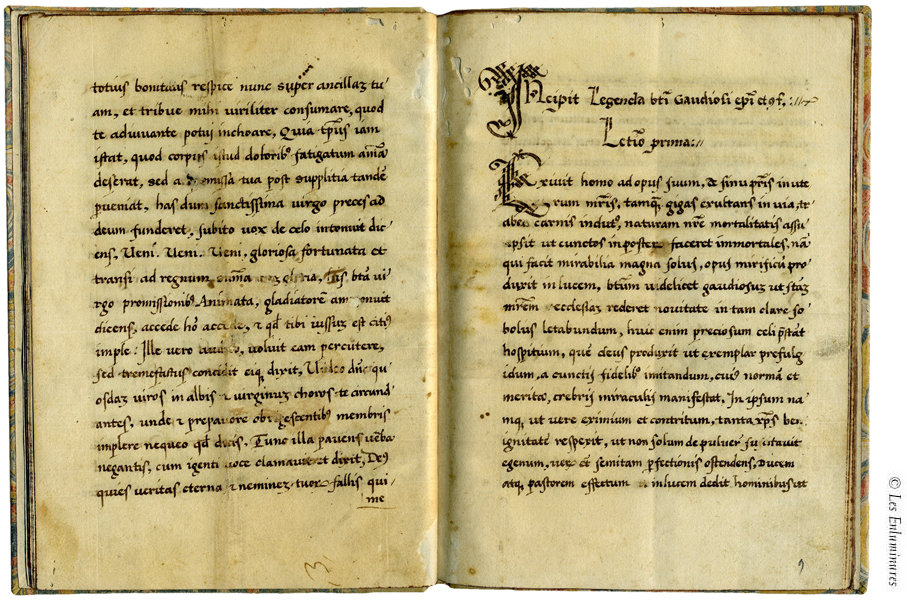 totius bonitatis respice nunc super ancillaʒ tu-
am, et tribue mihi viriliter consumare, quod
te adiuvante potui inchoare, Quia tp̄us iam
istat, quod corpus istud dolorib⁹ fatigatum aīam
deserat, sed a missa tua post supplitia tandē
perveniat, has dum sanctissima virgo preces ad
deum funderet, subito vox de celo intonuit dic-
ens, Veni. Veni. Veni, gloriosa fortunata et
transi ad regnum gloria, His btā vi-
rgo promissionib⁹ Animata, gladiatorē ammonuit
dicens, accede ho accede, ⁊ qd̄ tibi iussuʒ est citi⁹
imple: Ille vero voluit eam percutere,
sed tremefactus concidit eiq, dixit, Video dn̄e qu-
osdaʒ viros in albis et virginuʒ choros te circund
antes, unde ⁊ pre obrigescentibus membris
implere nequeo qd̄ dicis. Tunc illa pavens verba
negantis, cum igenti voce clamavit et dixit, De⁹
quies veritas eterna ⁊ nemineʒ tuoʒ fallis qui-
me
Incipit Legenda bti Gaudiosi epī et ɔf.
Lectio prima:
Exivit homo ad opus suum, de sinu pr̄is in ute
rum mr̄is, tamq̧ gigas exultans in via, tr
abea carnis indut⁹, naturam nr̄e mortalitatis assu
psit ut cunctos in posteʒ faceret immortales. nā
qui facit mirabilia magna solus, opus mirificū pro
duxit in lucem, btūm videlicet gaudiosuʒ ut staʒ
mr̄em ecclesiaʒ rederet novitate in tam clare so
bolus letabundum, hunc enim preciosum celi prestat
hospitium, quē deus produxit ut exemplar prefulg
idum, a cunctis fidelib⁹ imitandum, cui⁹ normā et
merita, crebris miraculis manifestat, In ipsum na
mq, ut vere eximium et contritum, tanta xp̄s ben
ignitate respexit, ut non solum de pulver suscitavit
egenum, veʒ et semitam perfectionis ostendens, Ducem
atq, pastorem effectum in lucem dedit hominibus ut
© Les Enluminures